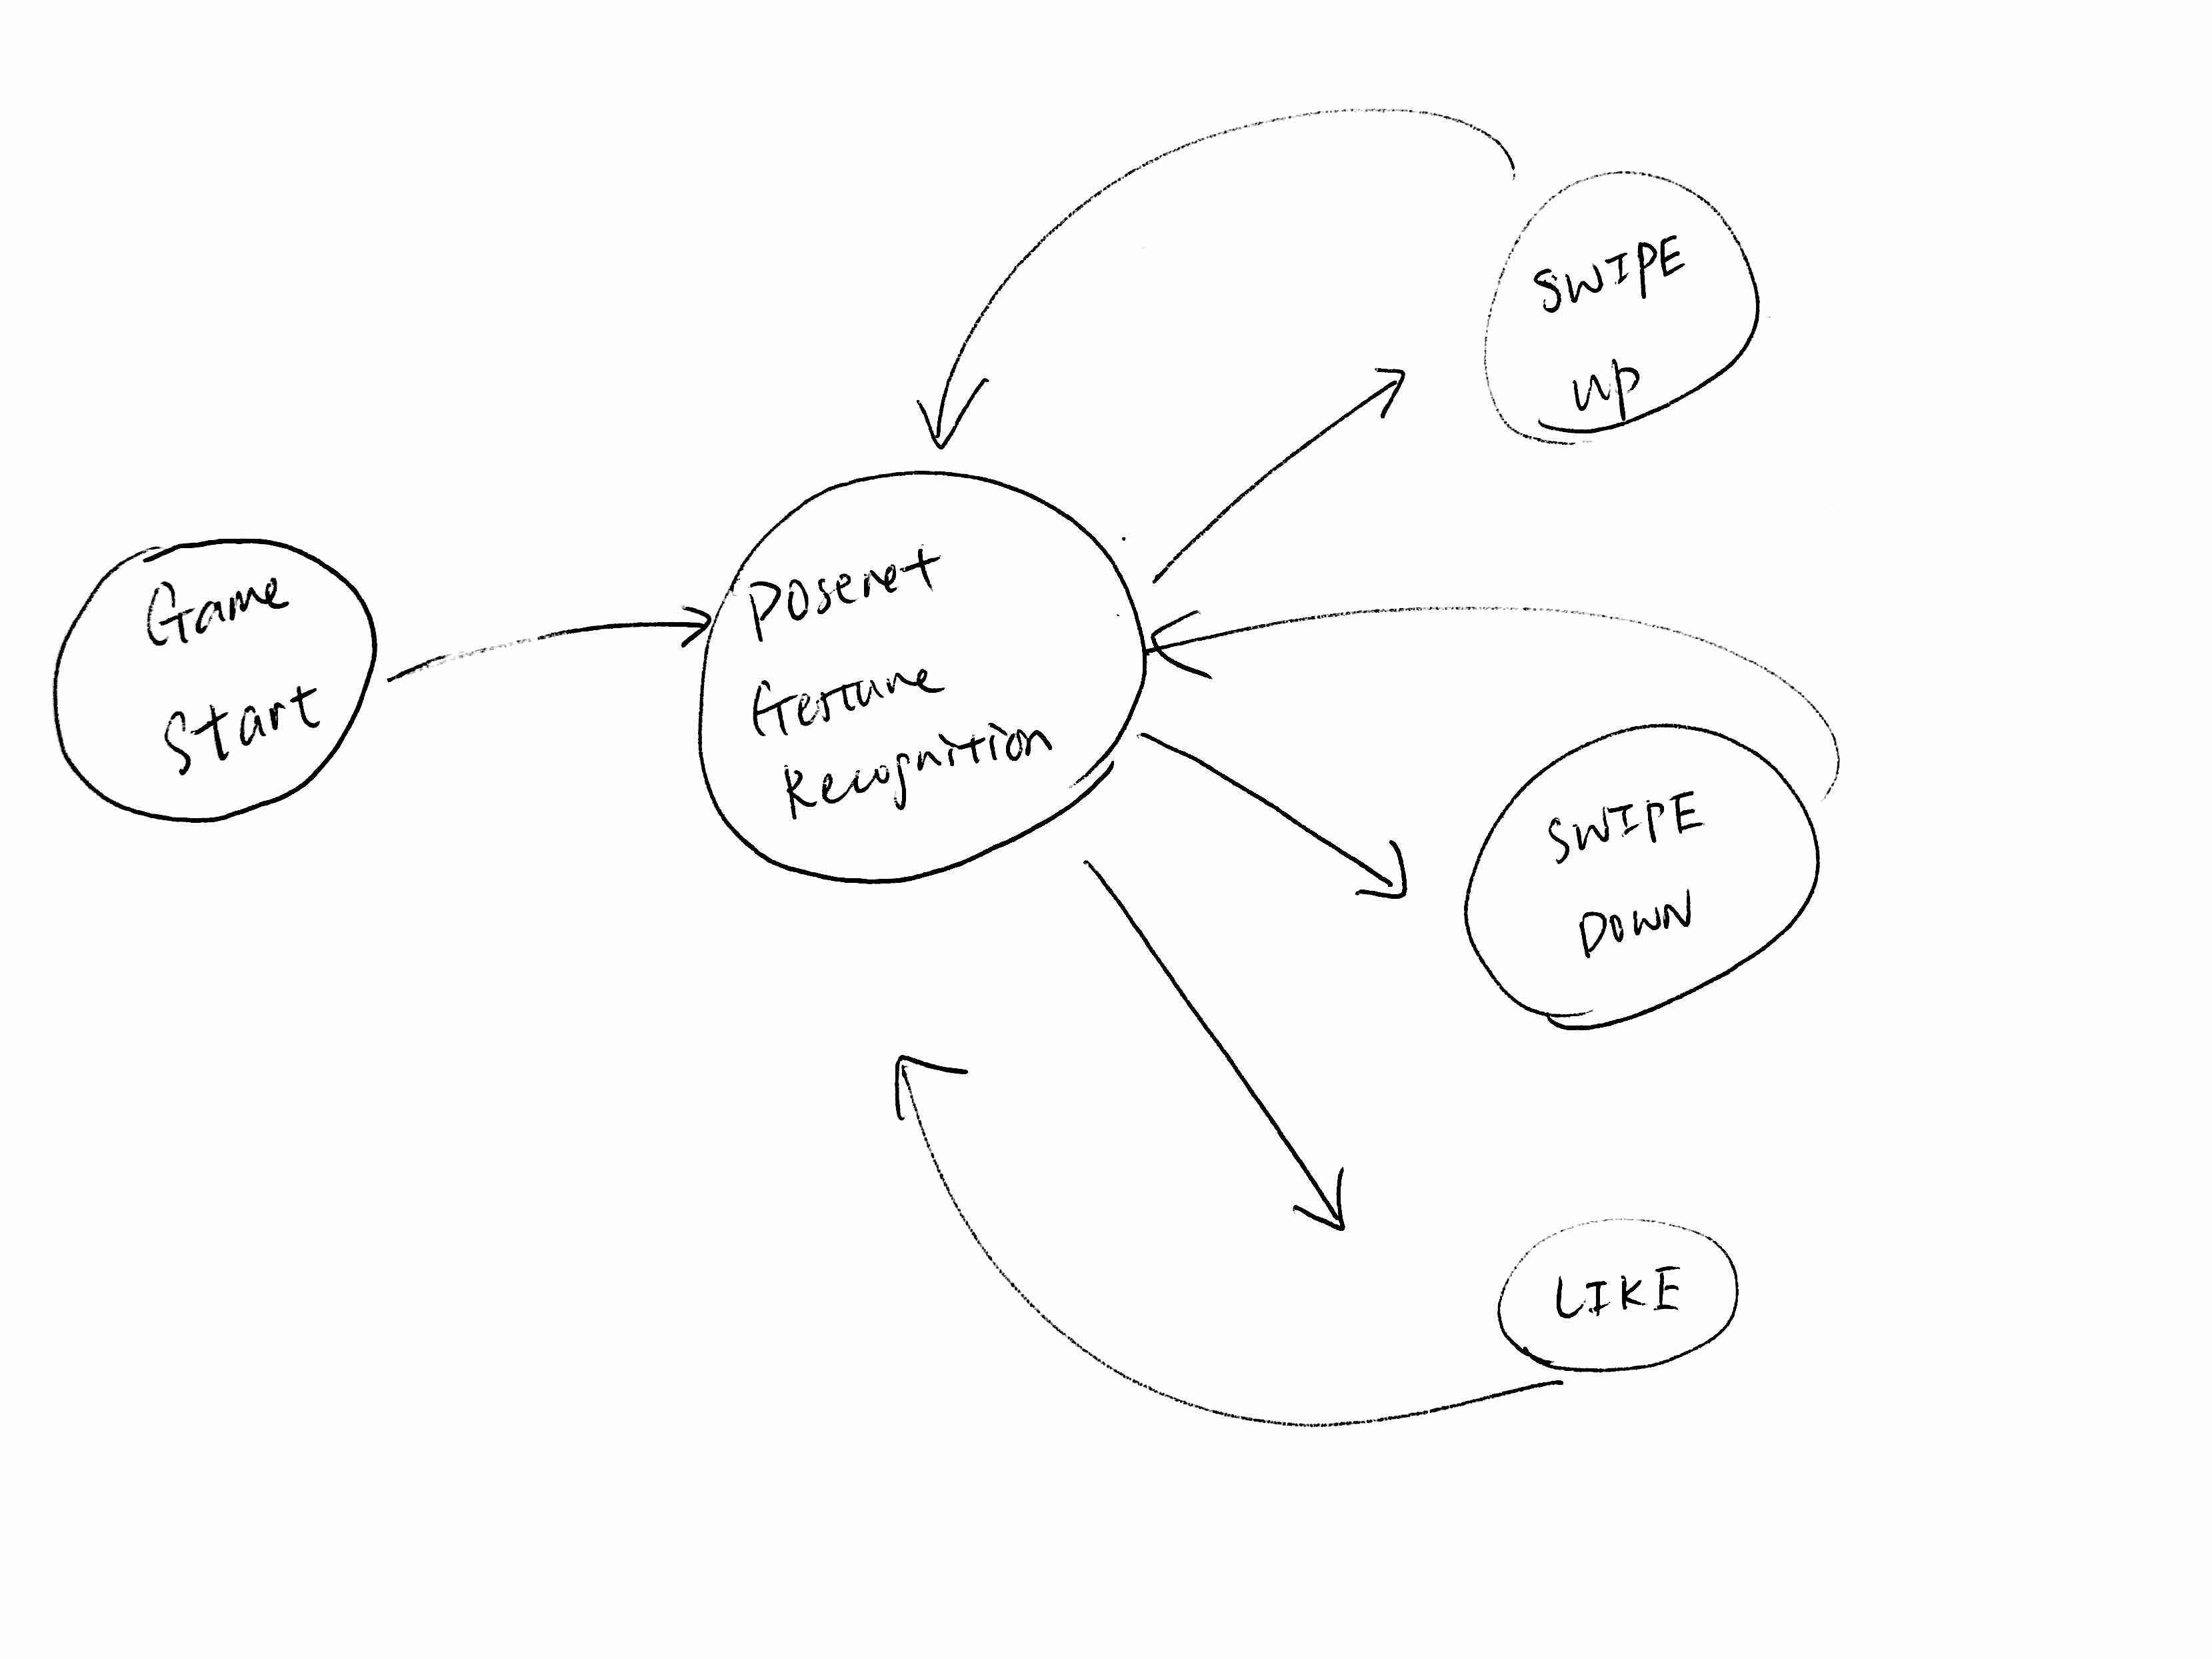 Game
Start
Posenet
Gesture
Recognition
SWIPE
UP
SWIPE
DOWN
LIKE